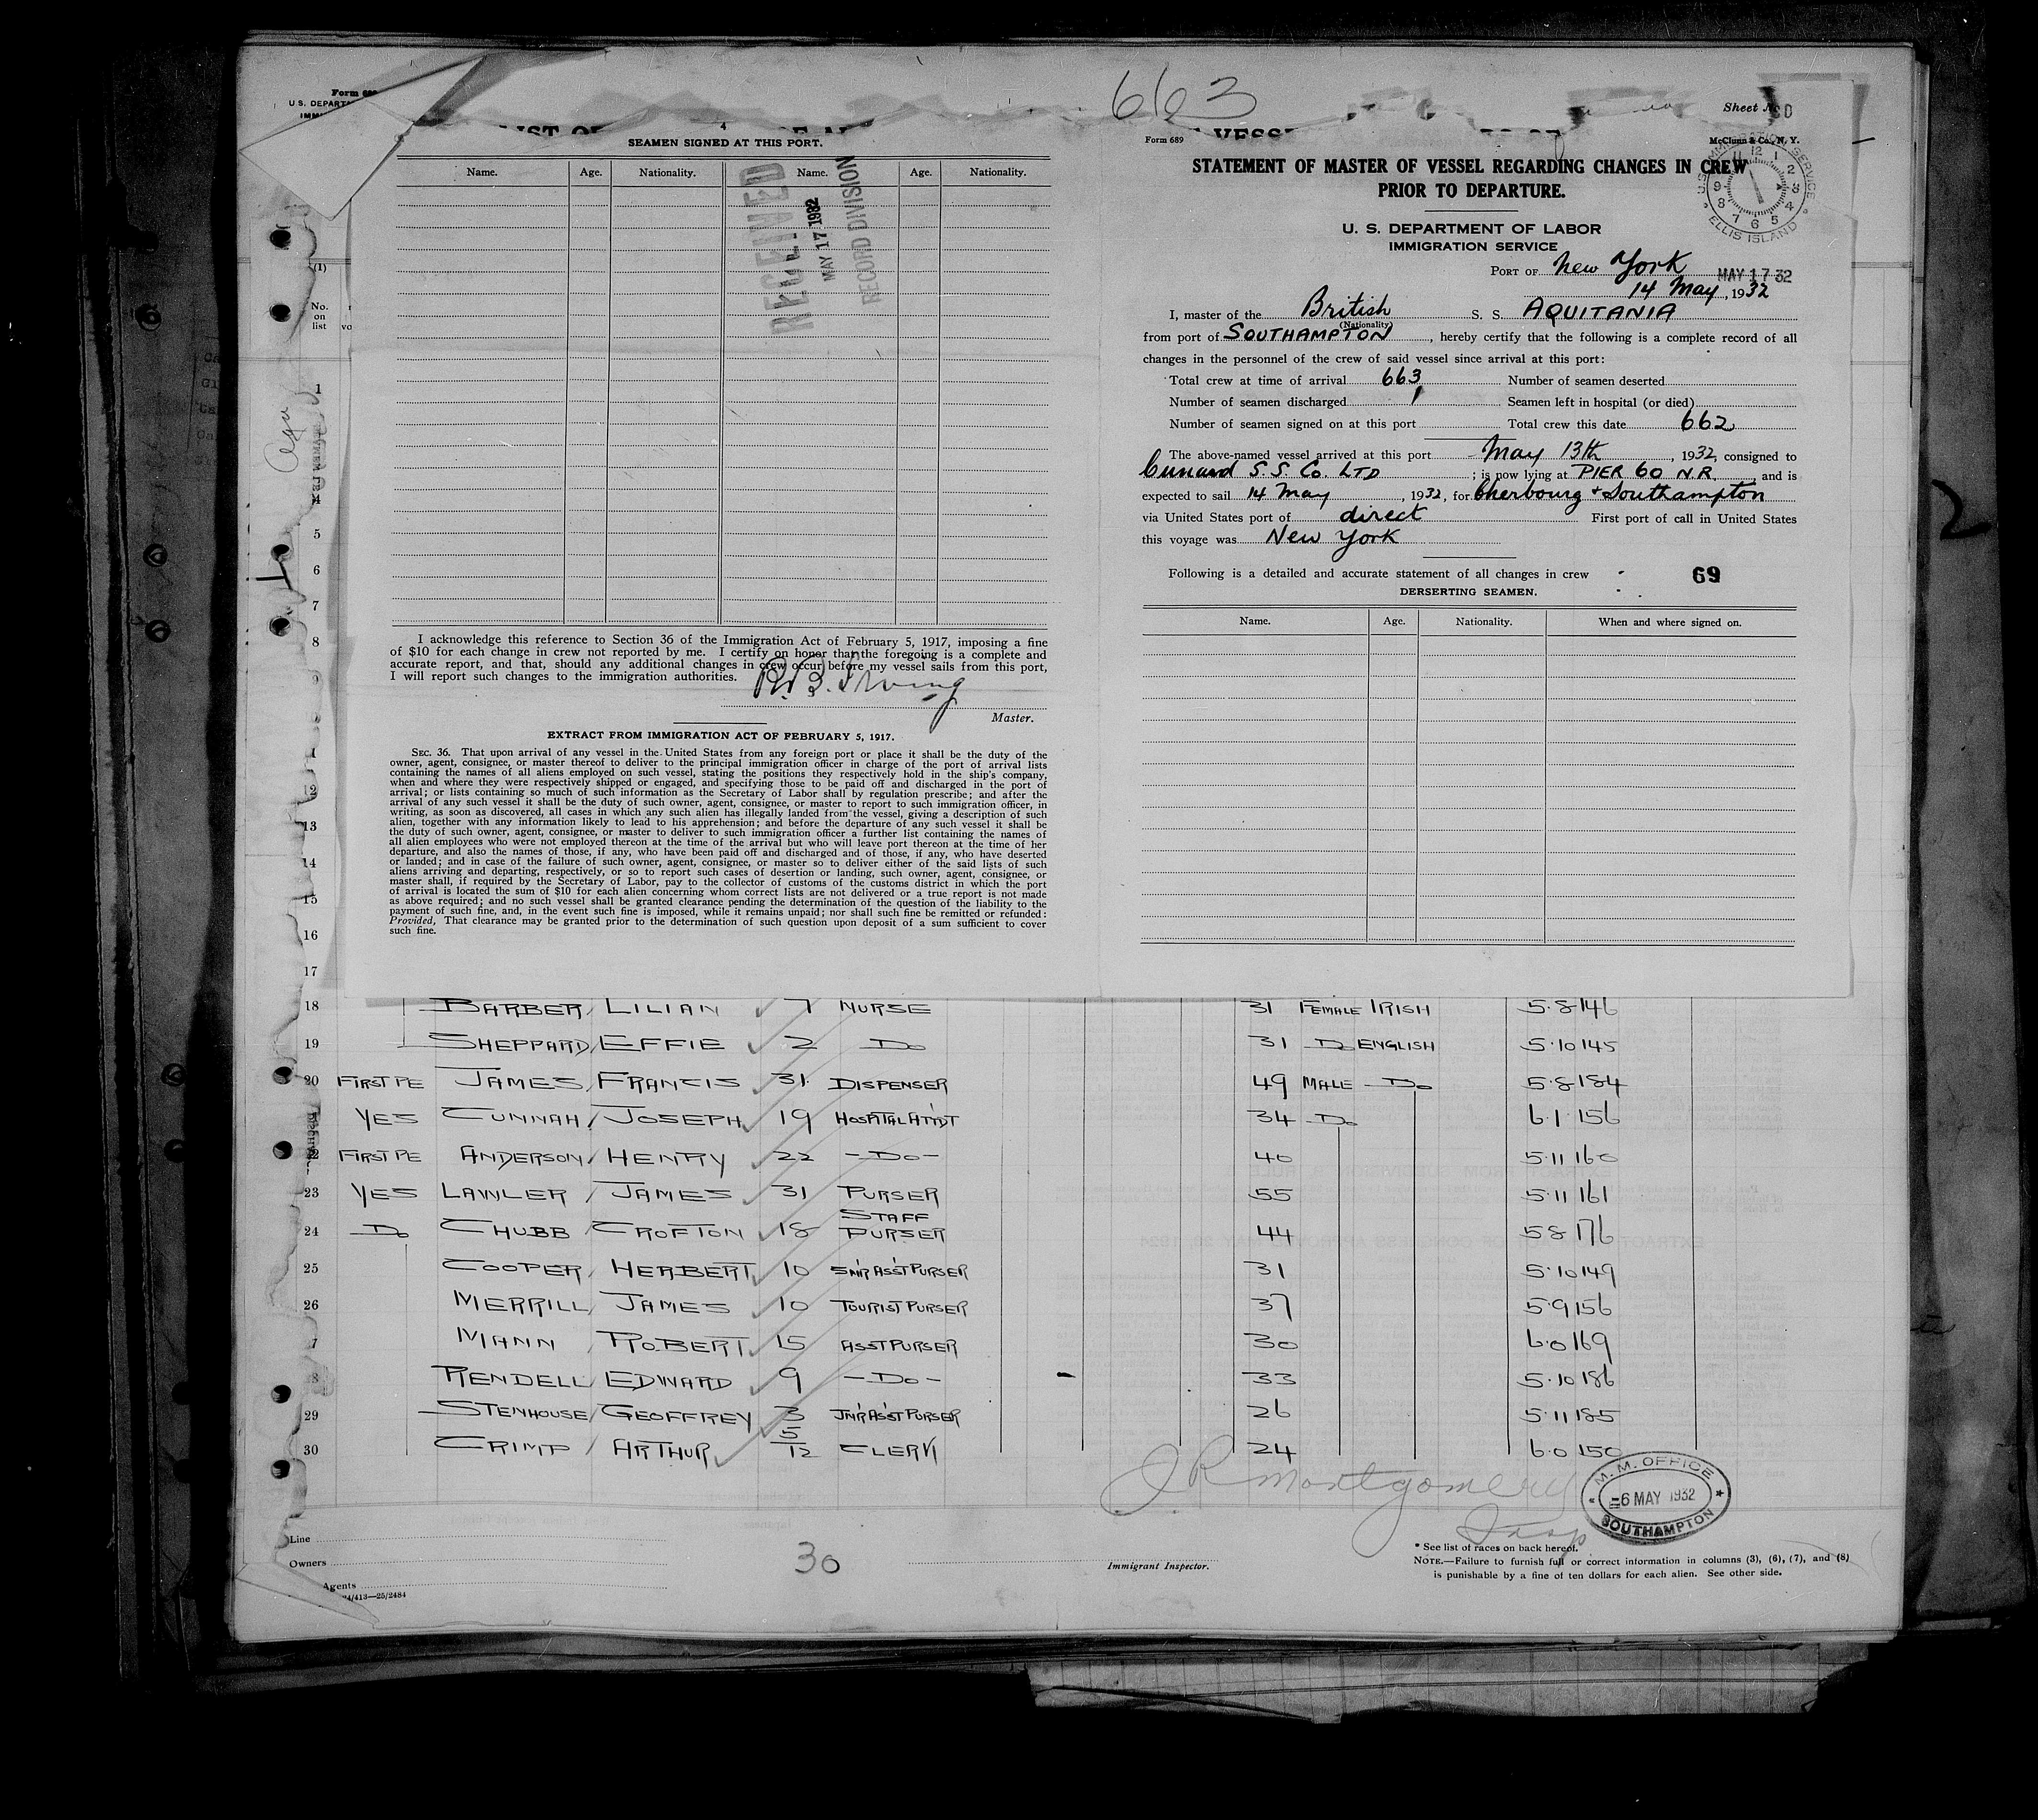 663
Form 689
U. S. DEPART
IMM
Sheet No
4
SEAMEN SIGNED AT THIS PORT.
Name. Age. Nationality. Name. Age. Nationality.
RECEIVED
MAY 17 1932
RECORD DIVISION
I acknowledge this reference to Section 36 of the Immigration Act of February 5, 1917, imposing a fine
of $10 for each change in crew not reported by me. I certify on honor that the foregoing is a complete and
accurate report, and that, should any additional changes in crew occur before my vessel sails from this port,
I will report such changes to the immigration authorities.
R. B. Irving
Master.
EXTRACT FROM IMMIGRATION ACT OF FEBRUARY 5, 1917.
SEC. 36. That upon arrival of any vessel in the United States from any foreign port or place it shall be the duty of the
owner, agent, consignee, or master thereof to deliver to the principal immigration officer in charge of the port of arrival lists
containing the names of all aliens employed on such vessel, stating the positions they respectively hold in the ship's company,
when and where they were respectively shipped or engaged, and specifying those to be paid off and discharged in the port of
arrival; or lists containing so much of such information as the Secretary of Labor shall by regulation prescribe; and after the
arrival of any such vessel it shall be the duty of such owner, agent, consignee, or master to report to such immigration officer, in
writing, as soon as discovered, all cases in which any such alien has illegally landed from the vessel, giving a description of such
alien, together with any information likely to lead to his apprehension; and before the departure of any such vessel it shall be
the duty of such owner, agent, consignee, or master to deliver to such immigration officer a further list containing the names of
all alien employees who were not employed thereon at the time of the arrival but who will leave port thereon at the time of her
departure, and also the names of those, if any, who have been paid off and discharged and of those, if any, who have deserted
or landed; and in case of the failure of such owner, agent, consignee, or master so to deliver either of the said lists of such
aliens arriving and departing, respectively, or so to report such cases of desertion or landing, such owner, agent, consignee, or
master shall, if required by the Secretary of Labor, pay to the collector of customs of the customs district in which the port
of arrival is located the sum of $10 for each alien concerning whom correct lists are not delivered or a true report is not made
as above required; and no such vessel shall be granted clearance pending the determination of the question of the liability to the
payment of such fine, and, in the event such fine is imposed, while it remains unpaid; nor shall such fine be remitted or refunded:
Provided, That clearance may be granted prior to the determination of such question upon deposit of a sum sufficient to cover
such fine.
Form 689 McClunn & Co., N. Y.
STATEMENT OF MASTER OF VESSEL REGARDING CHANGES IN CREW
PRIOR TO DEPARTURE.
U. S. DEPARTMENT OF LABOR
IMMIGRATION SERVICE
U.S. IMMIGRATION SERVICE
12 1 2 3 4 5 6 7 8 9
ELLIS ISLAND
PORT OF New York MAY 17 32
14 May, 1932
I, master of the British S. S. AQUITANIA
(Nationality)
from port of SOUTHAMPTON, hereby certify that the following is a complete record of all
changes in the personnel of the crew of said vessel since arrival at this port:
Total crew at time of arrival 663 Number of seamen deserted
Number of seamen discharged 1 Seamen left in hospital (or died)
Number of seamen signed on at this port Total crew this date 662
The above-named vessel arrived at this port May 13th, 1932, consigned to
Cunard S. S. Co. LTD; is now lying at PIER 60 N.R., and is
expected to sail 14 May, 1932, for Cherbourg & Southampton
via United States port of direct First port of call in United States
this voyage was New York
Following is a detailed and accurate statement of all changes in crew 69
DERSERTING SEAMEN.
Name. Age. Nationality. When and where signed on.
2
(1)
No.
on
list
1
4
5
6
7
8
9
12
13
14
15
16
17
18 BARBER LILIAN 7 NURSE 31 FEMALE IRISH 5·8 146
19 SHEPPARD EFFIE 2 Do 31 Do ENGLISH 5·10 145
20 FIRST PE JAMES FRANCIS 31 DISPENSER 49 MALE Do 5·8 184
YES CUNNAH JOSEPH 19 HOSPITAL ATTDT 34 Do 6·1 156
22 FIRST PE ANDERSON HENRY 22 —Do— 40 5·11 160
23 YES LAWLER JAMES 31 PURSER 55 5·11 161
24 Do CHUBB CROFTON 18 STAFF PURSER 44 5 8 176
25 COOPER HERBERT 10 SNR ASST PURSER 31 5·10 149
26 MERRILL JAMES 10 TOURIST PURSER 37 5·9 156
7 MANN ROBERT 15 ASST PURSER 30 6·0 169
8 RENDELL EDWARD 9 —Do— 33 5·10 186
29 STENHOUSE GEOFFREY 3 JNR ASST PURSER 26 5·11 185
30 CRIMP ARTHUR 5/12 CLERK 24 6·0 150
J R Montgomery
Insp
M. M. OFFICE
=6 MAY 1932
SOUTHAMPTON
Line
Owners
Agents
4/413—25/2484
30
Immigrant Inspector.
* See list of races on back hereof.
NOTE.—Failure to furnish full or correct information in columns (3), (6), (7), and (8)
is punishable by a fine of ten dollars for each alien. See other side.